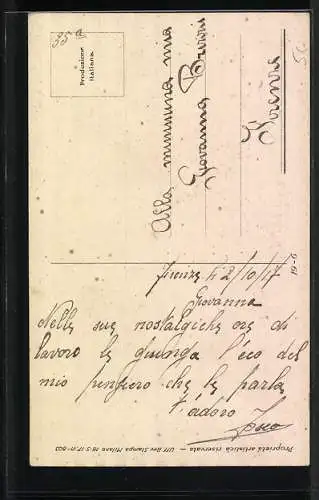 35
Produzione
Italiana
Alla mia
Giovanna
Firenze
Firenze 2/10/17
Giovanna
Nelle sue nostalgiche ore di
lavoro le giunga l'eco del
mio pensiero che le parla
t'adoro
Proprietà artistica riservata — Uff. Rev. Stampa Milano